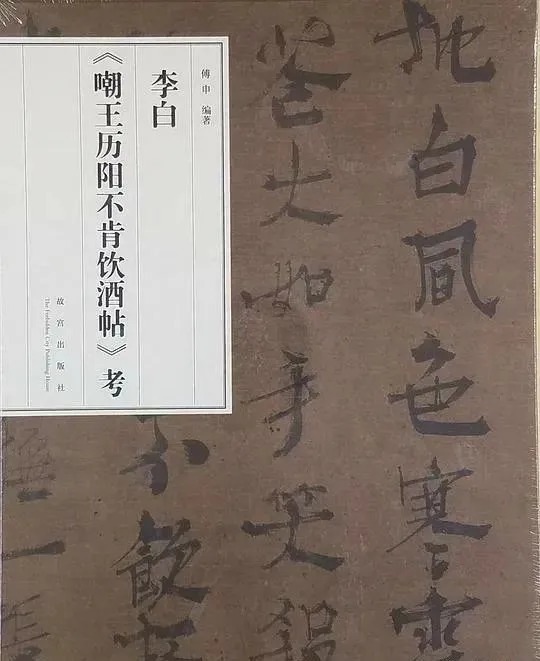 地白風色寒雪
花大如手笑殺
傅申 编著
李白
《嘲王历阳不肯饮酒帖》考
故宫出版社
The Forbidden City Publishing House
不飲
撫一